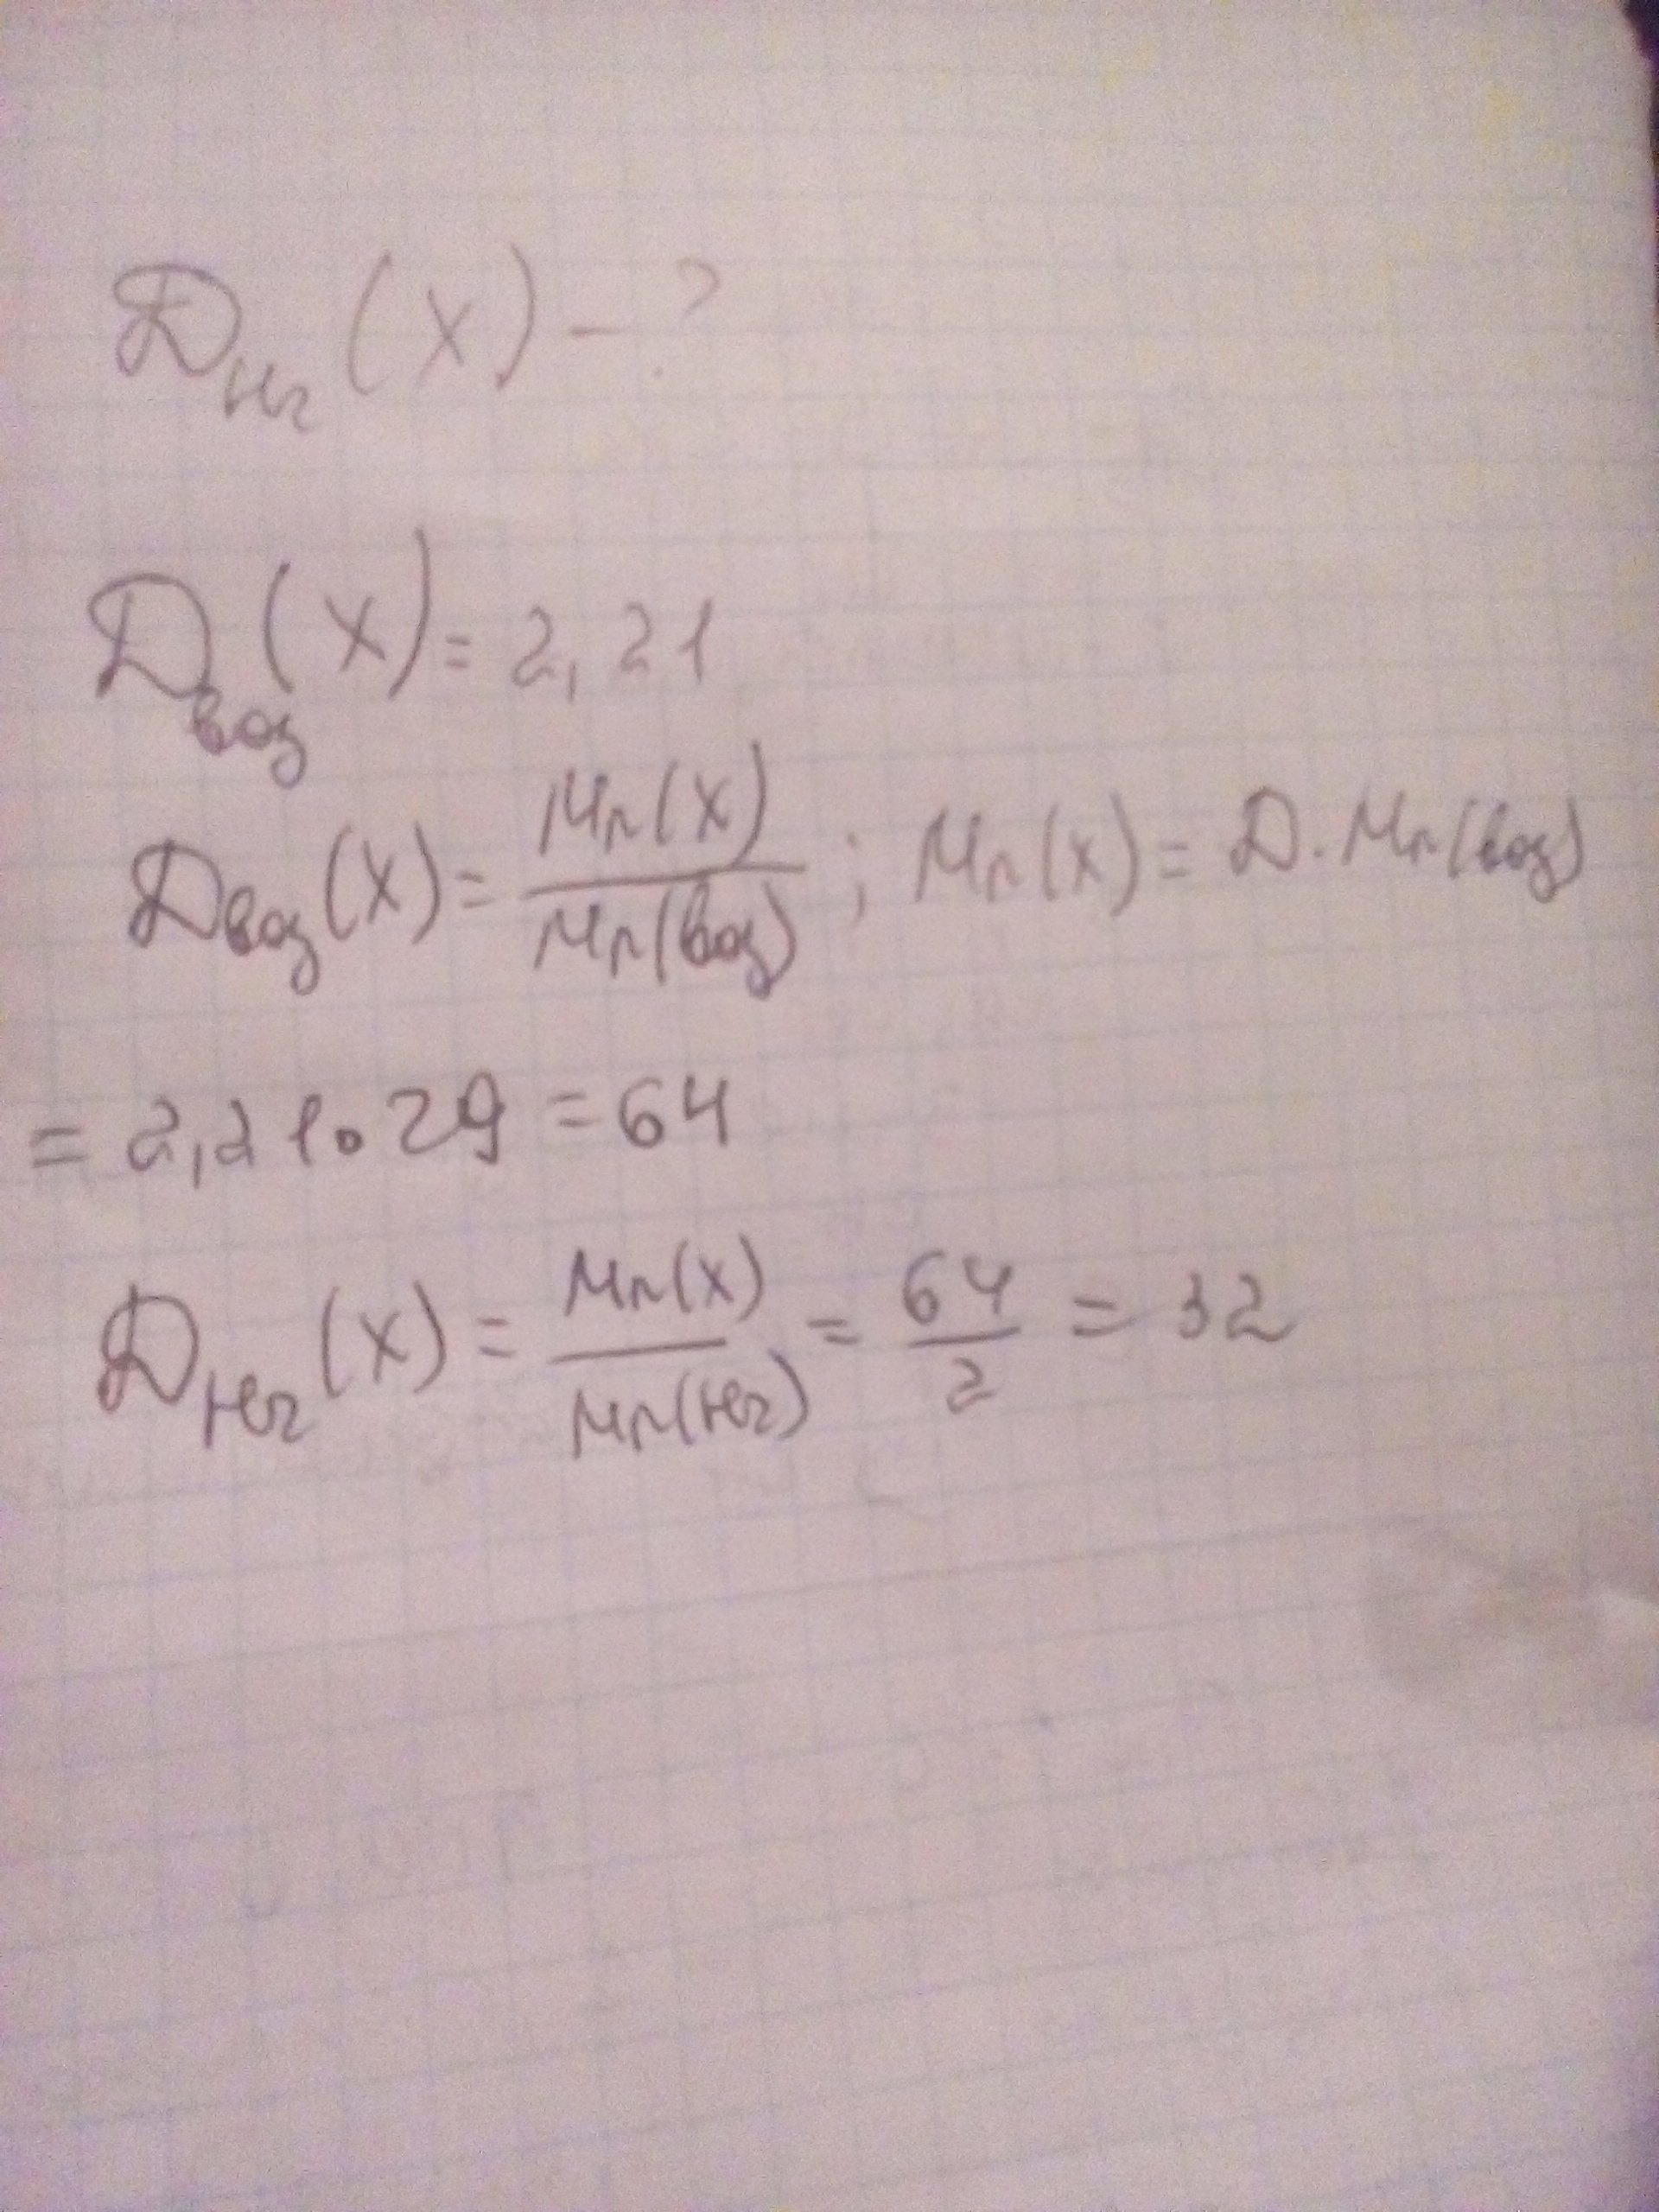 D_H₂(X) - ?
D_воз(X) = 2,21
D_воз(X) = Mr(X) / Mr(воз) ; Mr(X) = D · Mr(воз)
= 2,21 · 29 = 64
D_H₂(X) = Mr(X) / Mr(H₂) = 64 / 2 = 32